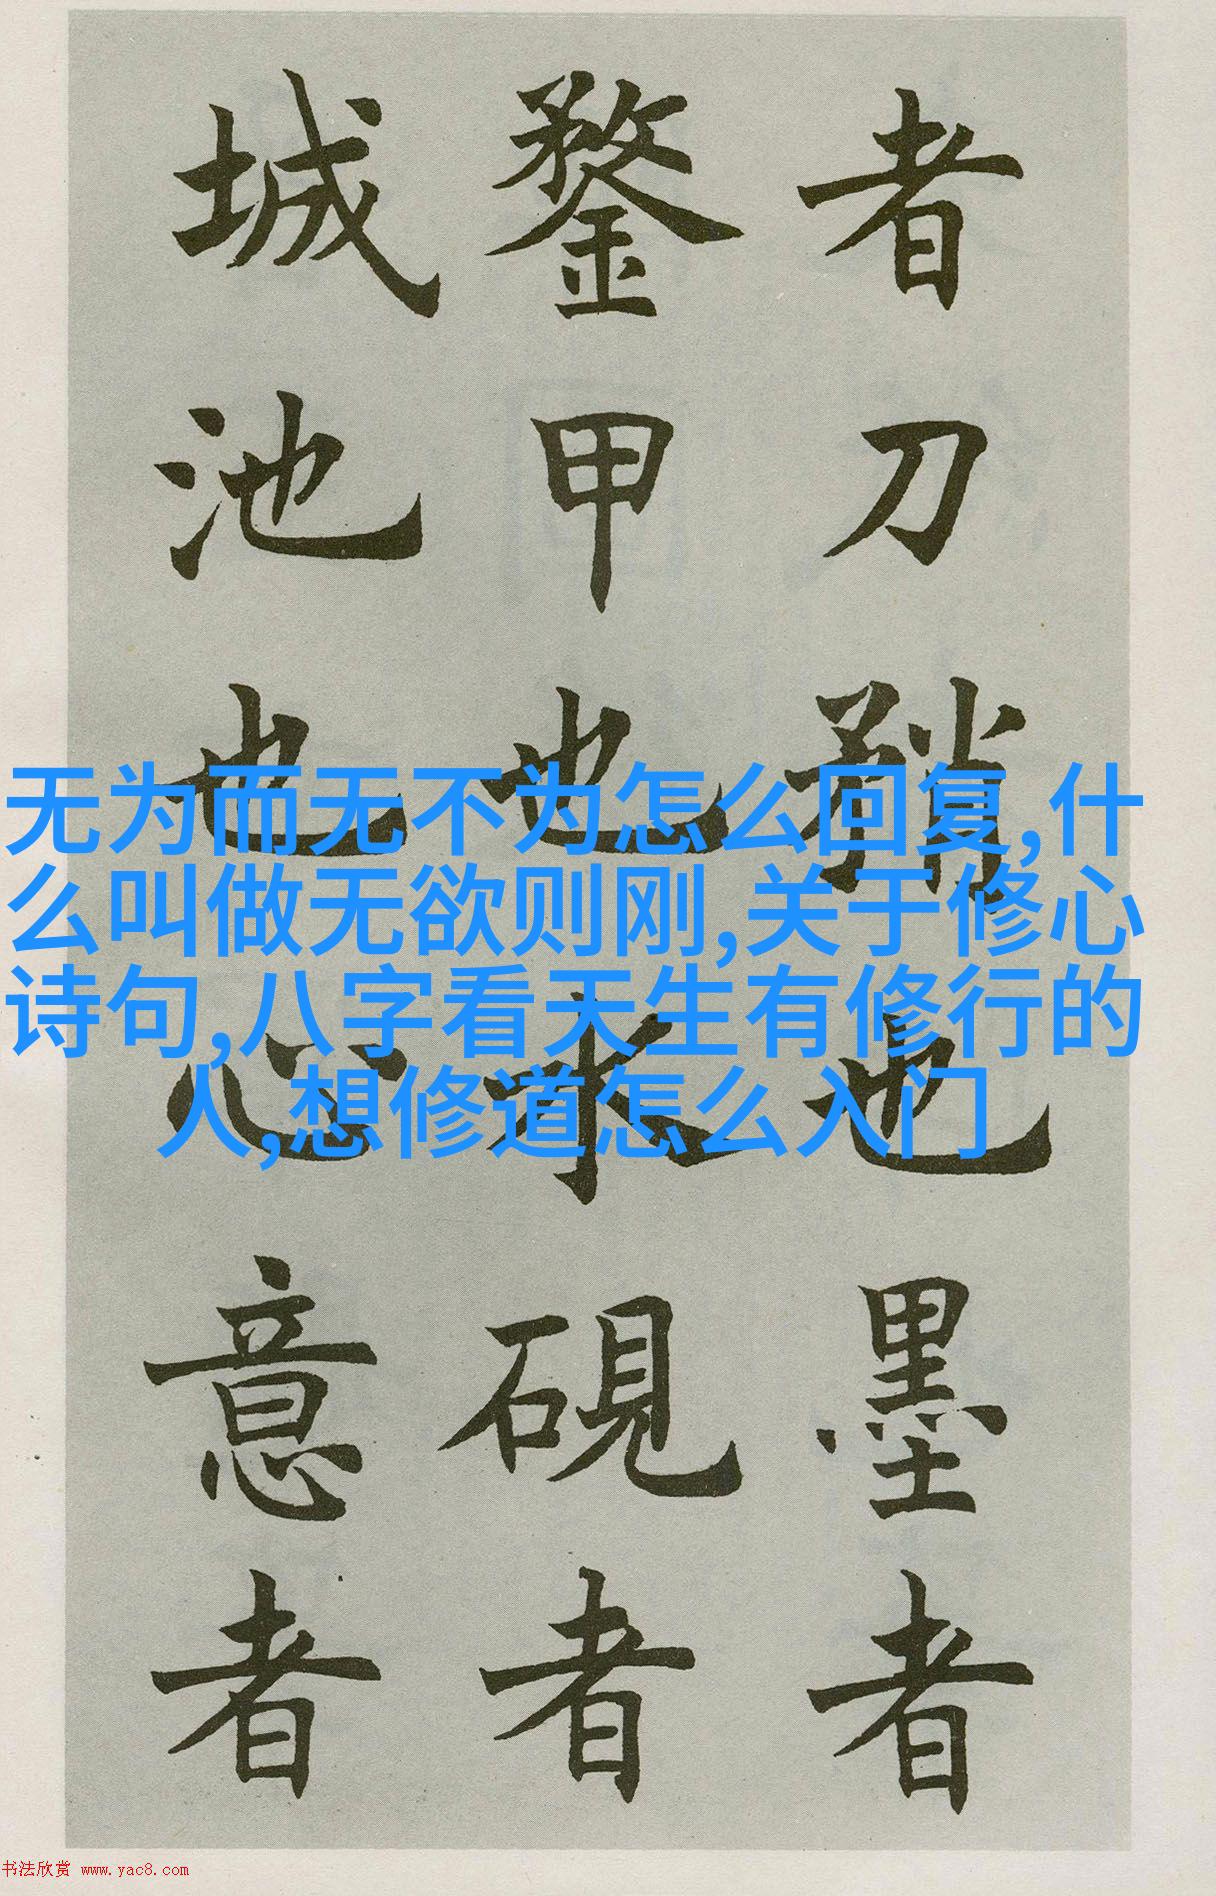 者刀矟也墨者
鍪甲也水硯者
城池也心意者
无为而无不为怎么回复,什
么叫做无欲则刚,关于修心
诗句,八字看天生有修行的
人,想修道怎么入门
书法欣赏 www.yac8.com